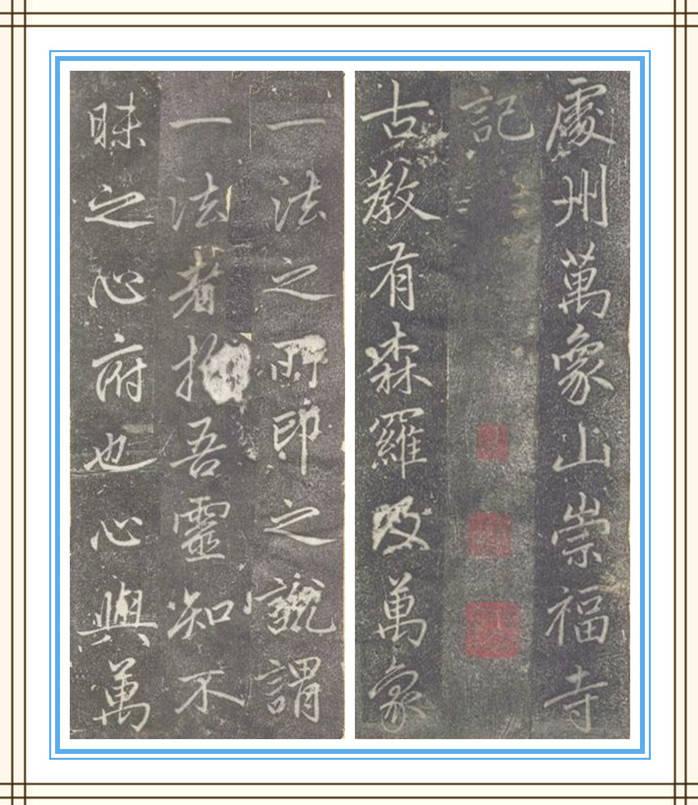 處州萬象山崇福寺
記
古教有森羅及萬象
一法之所印之說謂
一法者吾靈知不
昧之心府也心與萬